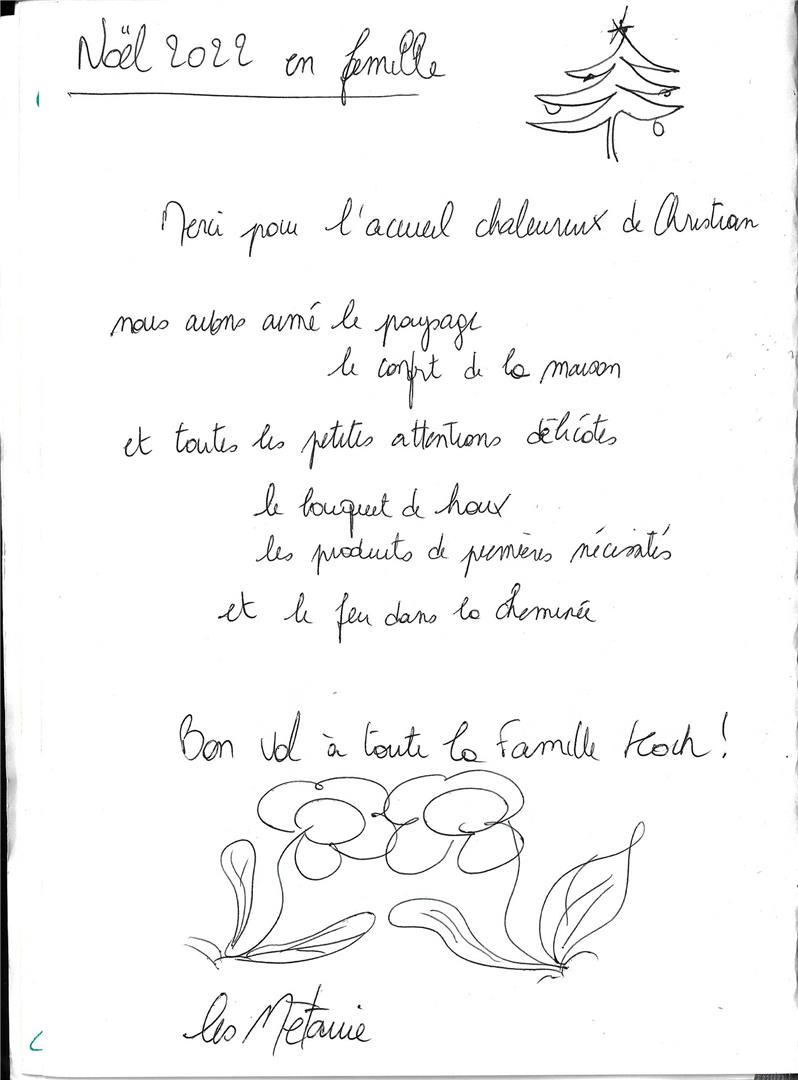 Noël 2022 en famille
Merci pour l'accueil chaleureux de Christian
nous avons aimé le paysage
le confort de la maison
et toutes les petites attentions délicates
le bouquet de houx
les produits de premières nécessités
et le feu dans la cheminée
Bon vol à toute la famille Koch !
les Métairie